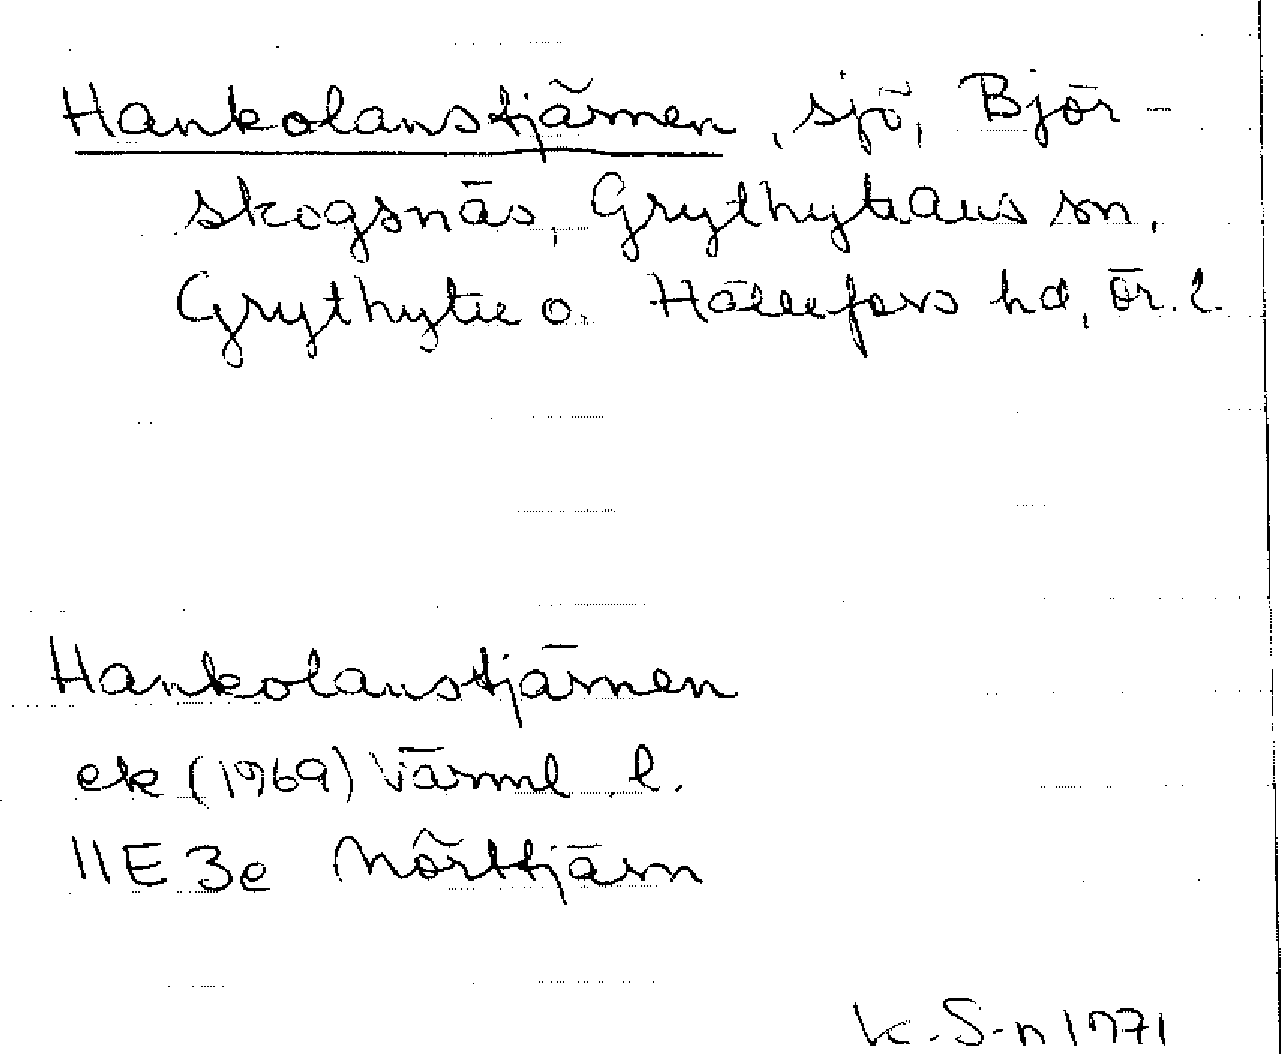 Hankolanstjärnen, sjö, Björ-
skogsnäs, Grythyttans sn,
Grythytte o. Hällefors hd, Ör. l.
Hankolanstjärnen
ek (1969) Värml l.
11E 3e Mörttjärn
K. S-n 1971